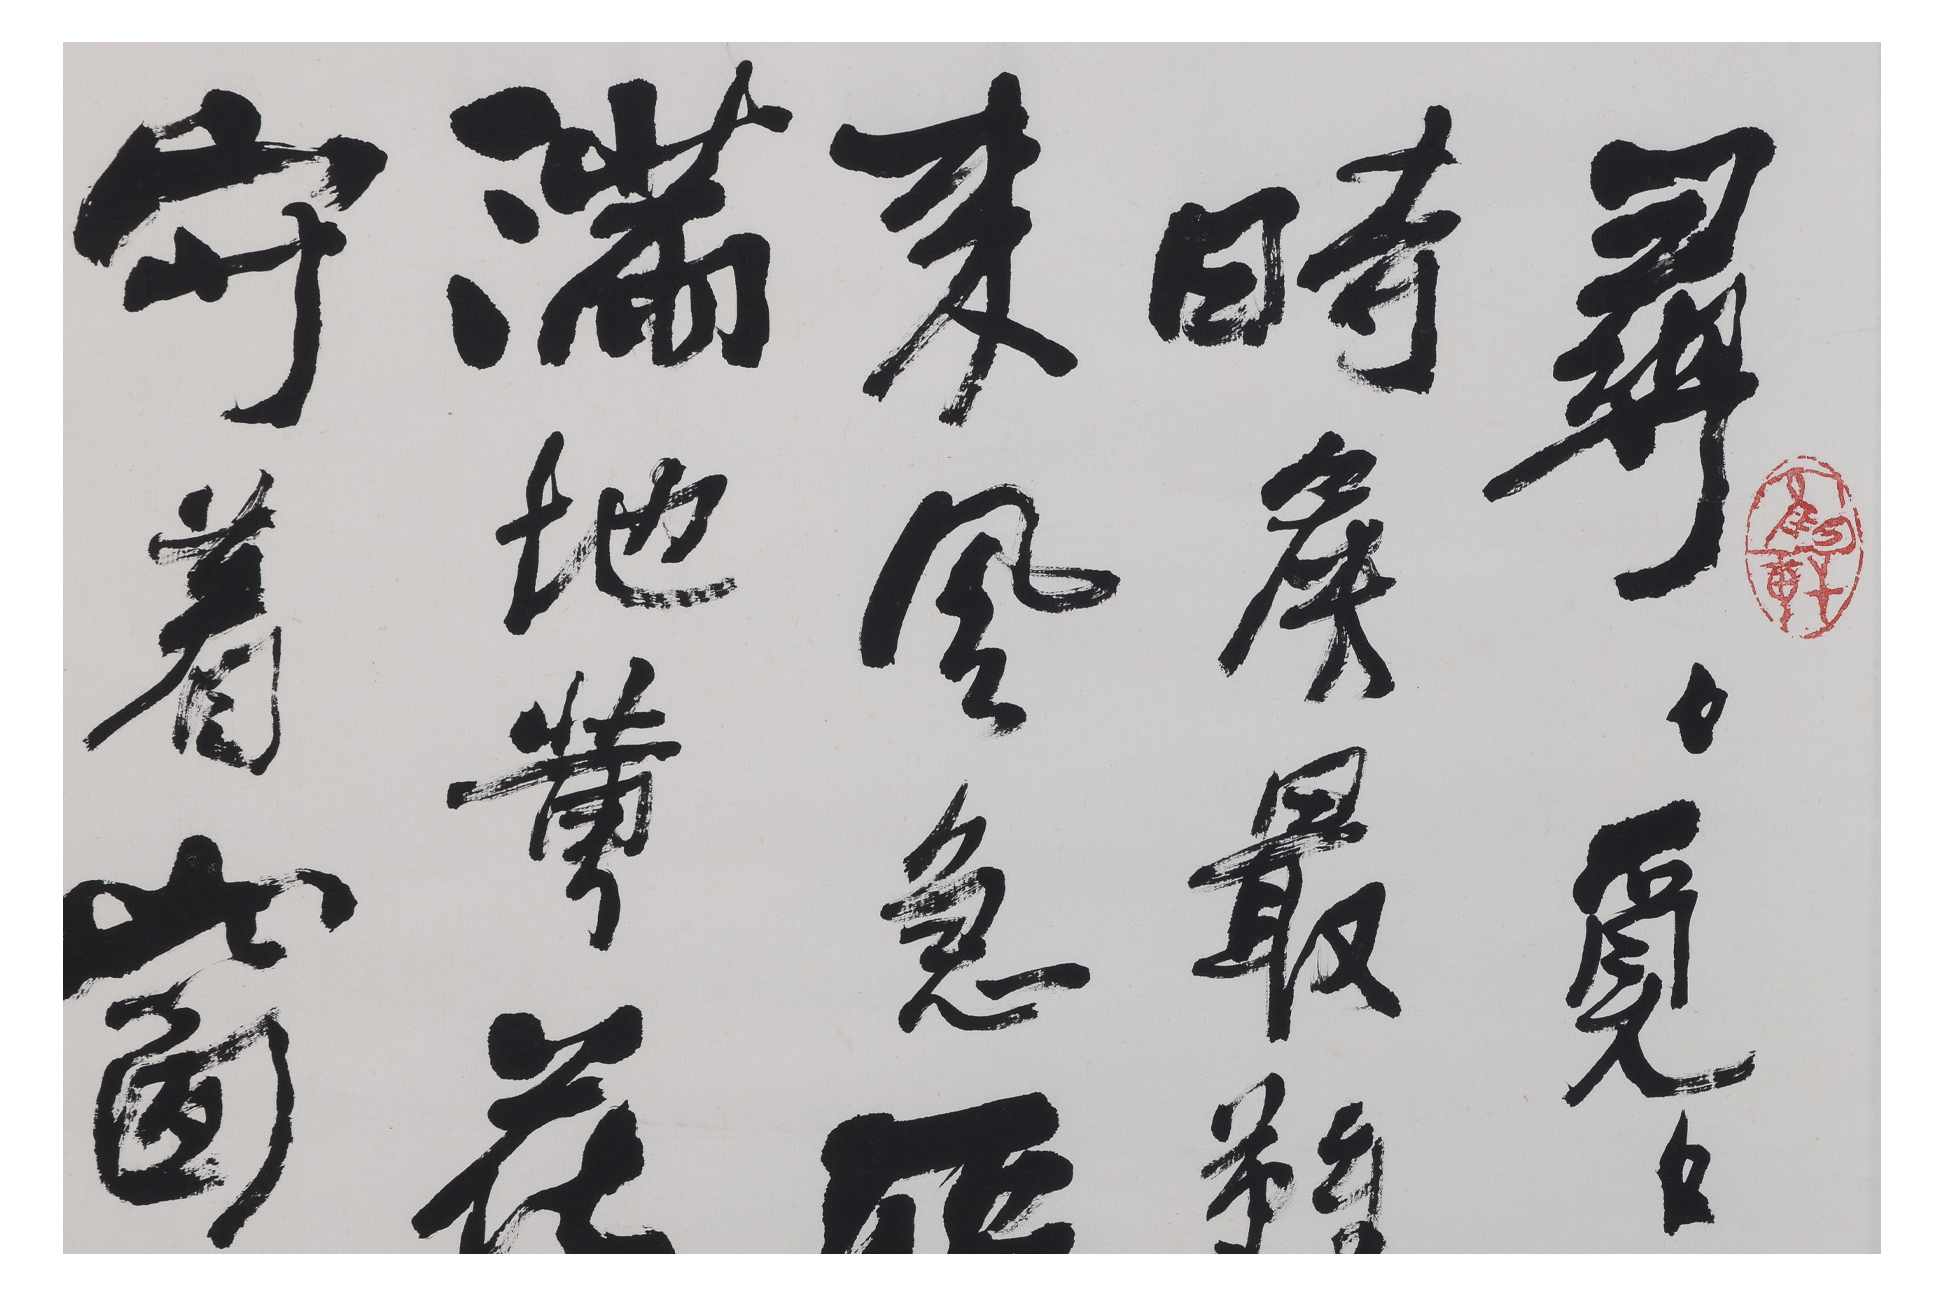 尋々覓々
時候最難
來風急
滿地黃花
守着窗